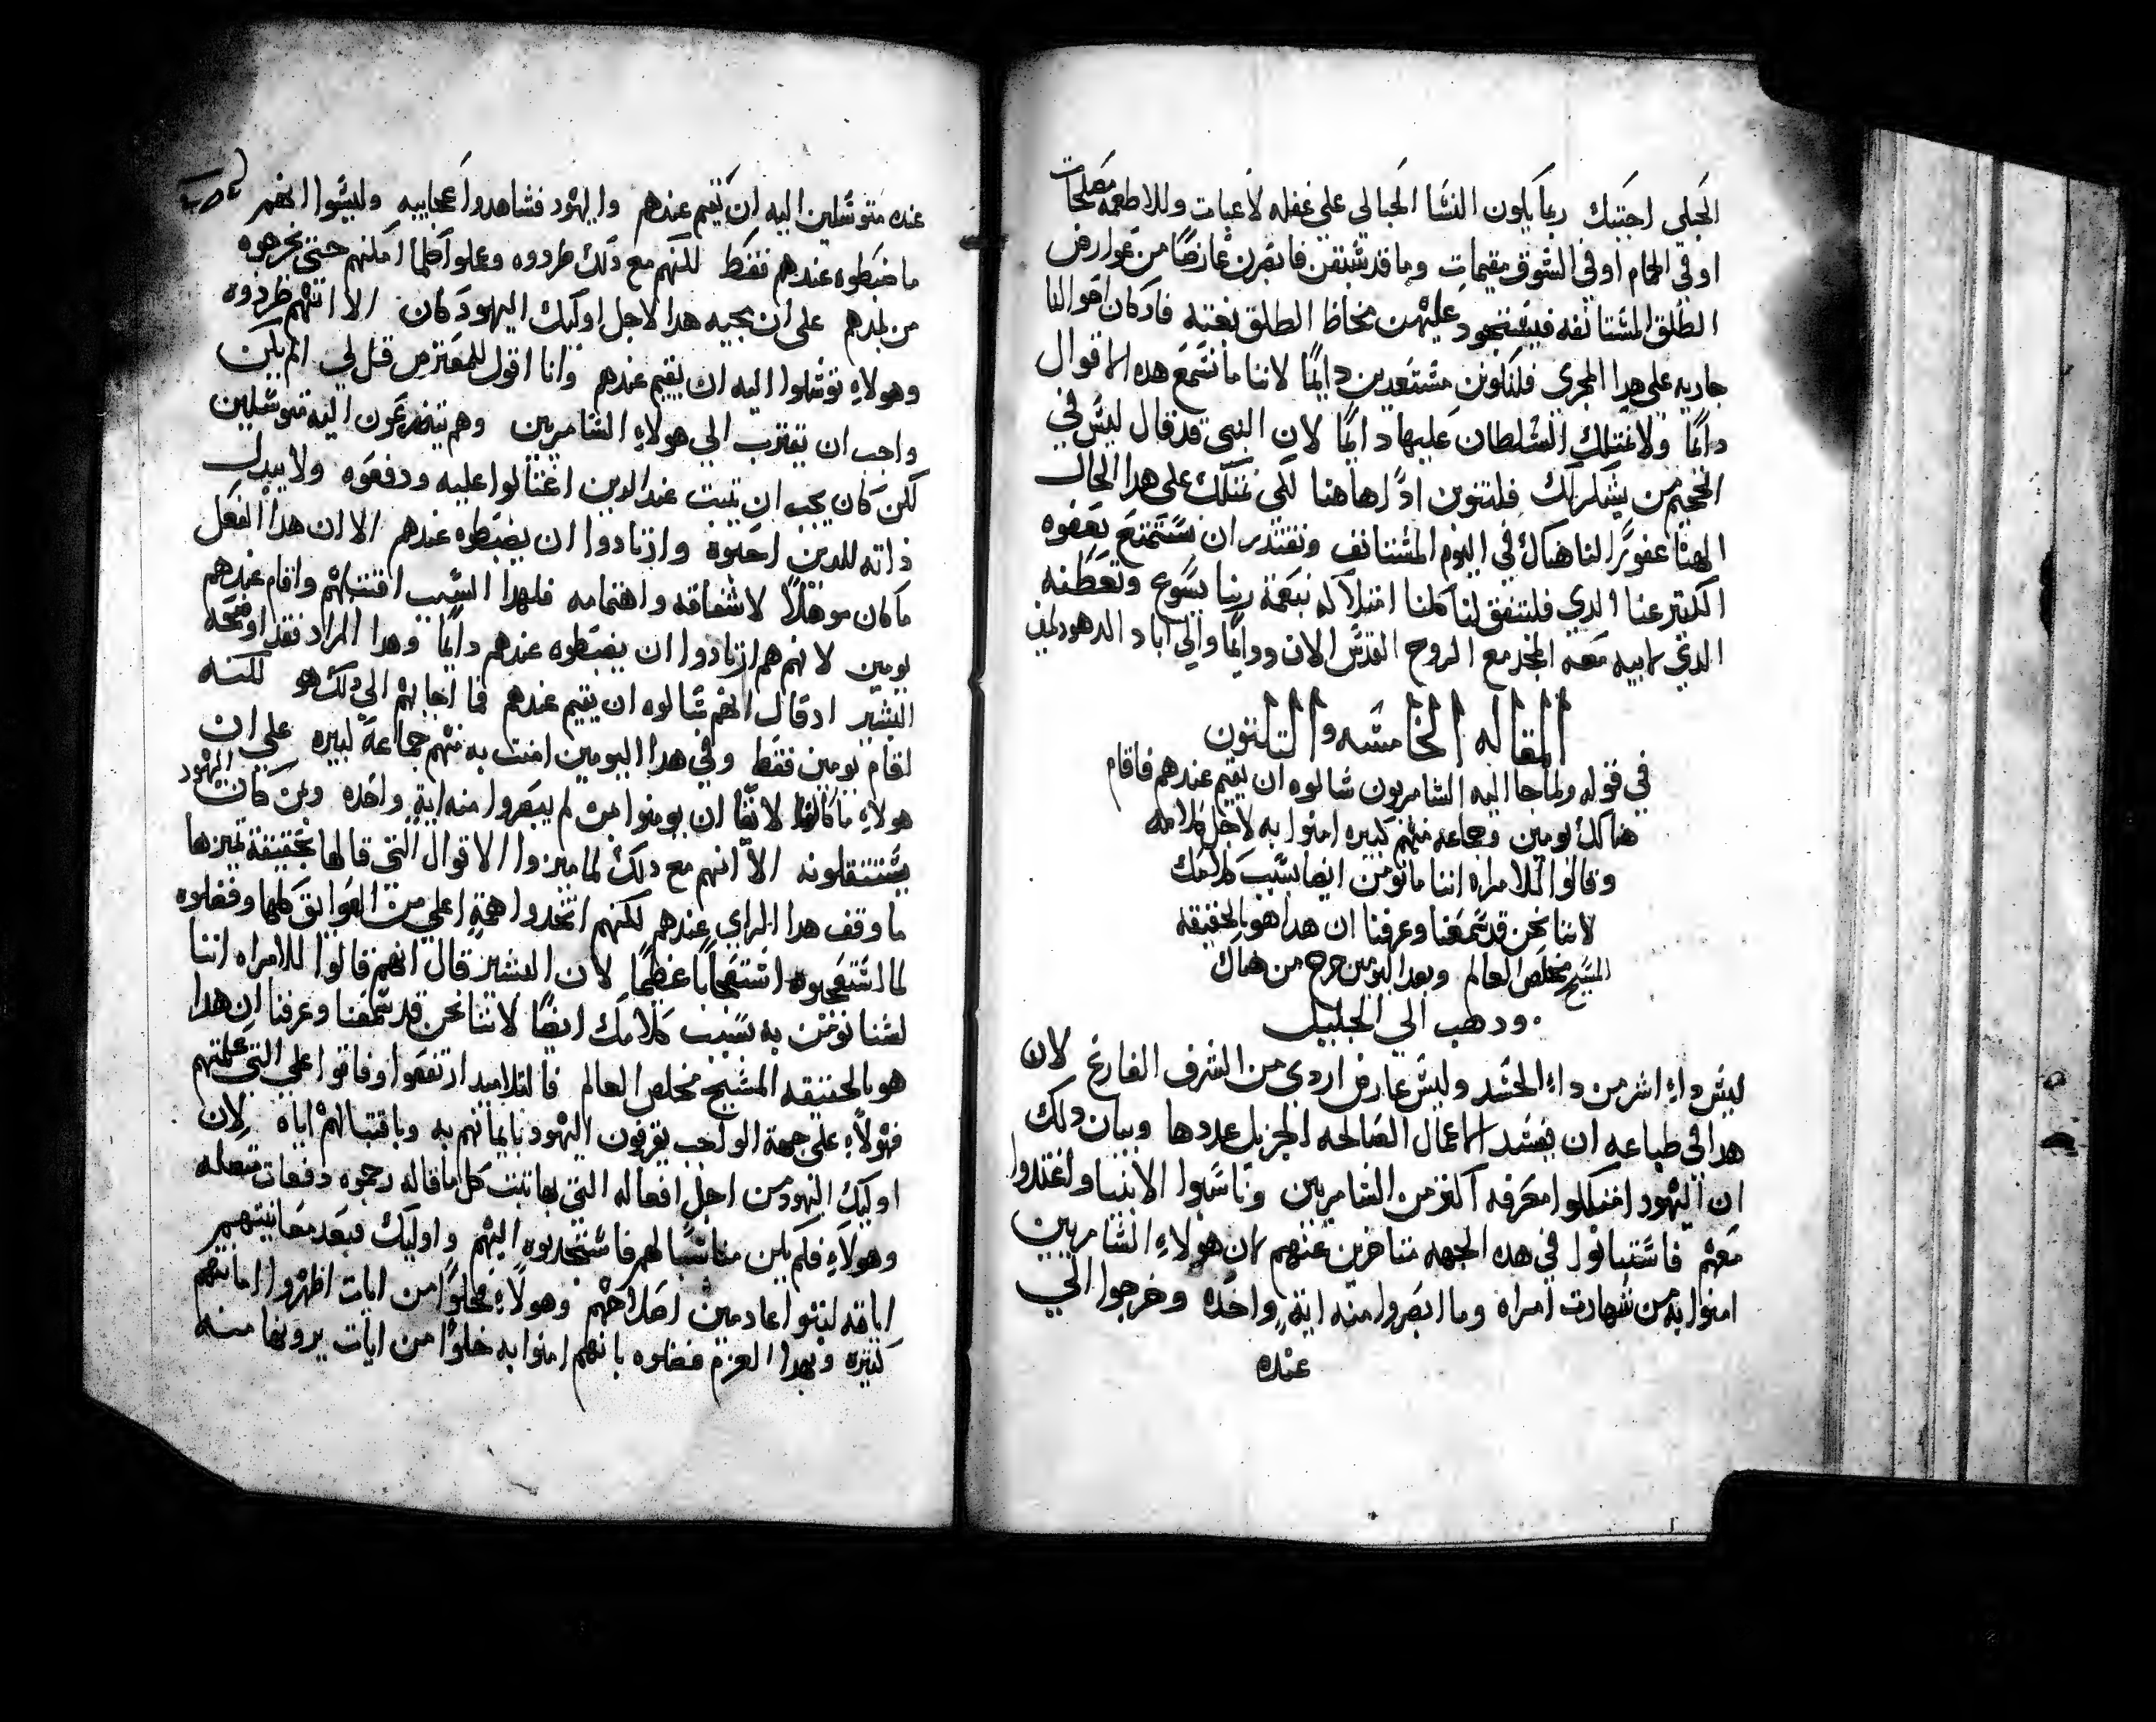 الحبلى اجتبك ربما يكون النشا الحبالي على غفله لاعبات وللاطعمه مصلحات
او في الحمام او في الشوق مقيمات وما قد شبقن فابصرن عارضًا من عوارض
الطلق المشتانفه فيشتحود عليهن مخاظ الطلق بغته فاد كان احوالنا
جاريه على هدا المجرى فلنكونن مشتعدين دايمًا لاننا ما نشمع هده الاقوال
دايمًا ولا نمتلك الشلطان عليها دايمًا لان النبى قد قال ليش في
الجحيم من يشكر لك فلنتوبن ادًا هاهنا لكى نمتلك على هدا الحال
الهنا غفورًا لنا هناك في اليوم المشتانف ونقتدر ان نشتمتع بعفوه
الكتير عنا الدي فلتتفق لنا كلنا امتلاكه بنعمة ربنا يسوع وتعطفه
الدي لابيه معه المجد مع الروح القدش الان ودايمًا والي اباد الدهور امين
المقاله الخامشه والتلتون
في قوله ولما جا اليه الشامريون شالوه ان يقيم عندهم فاقام
هناك يومين وجماعه منهم كبيره امنوا به لاجل كلامه
وقالوا للامراه اننا ما نومن ايضا بشبب كلامك
لاننا نحن قد شمعنا وعرفنا ان هدا هو بالحقيقه
المشيح مخلص العالم وبعد اليومين خرج من هناك
ودهب الي الجليل
ليش داءِ اشر من داءِ الحشد وليش عارض اردى من الشرف الفارغ لان
هدا في طباعه ان يفشد الاعمال الصالحه الجزيل عددها وبيان دلك
ان اليهود امتلكوا معرفه اكتر من الشامريين وناشبوا الانبيا واغتدوا
معهم فاشتبانوا في هده الجهه متاخرين عنهم لان هولاءِ الشامريين
امنوا به من شهادت امراه وما ابصروا منه ايةٍ واحده وخرجوا الي
عنده
عنده متوشلين اليه ان يقيم عندهم واليهود فشاهدوا عجايبه وليشوا انهم
ما ضبطوه عندهم فقط لكنهم مع دلك طردوه وعملوا كلما امكنهم حتي يخرجوه
من بلدهم على ان مجيه هدا لاجل اوليك اليهود كان الا انهم طردوه
وهولاءِ توشلوا اليه ان يقيم عندهم وانا اقول للمعترض قل لي الم يكن
واجب ان يقترب الي هولاءِ الشامريين وهم يتضرعون اليه متوشلين
لكن كان يجب ان يتبت عند الدين اغتالوا عليه ودفعوه ولا يبدل
داته للدين احبوه وازتادوا ان يضبطوه عندهم الا ان هدا الفعل
ما كان موهلاً لاشفاقه واهتمامه فلهدا الشبب اقتبلهم واقام عندهم
يومين لانهم هم ازتادوا ان يضبطوه عندهم دايمًا وهدا المراد فقد اوضحه
البشير اد قال انهم شالوه ان يقيم عندهم فما اجابهم الي دلك هو لكنه
اقام يومين فقط وفي هدا اليومين امنت به منهم جماعة كبيره علي ان
هولاءِ ما كانوا لانقًا ان يومنوا من لم يبصروا منه ايةٍ واحده ومن كان اليهود
يشتتقلونه الا انهم مع دلك لما ميزوا الاقوال التي قالها بحقيقة تميزها
ما وقف هدا الراي عندهم لكنهم اتخدوا همةٍ اعلي من العوايق كلها وفضلوه
لما اشتعجبوه اشتعجابًا عظيمًا لان البشير قال انهم قالوا للامراه اننا
لشنا نومن به بشبب كلامك ايضًا لاننا نحن قد شمعنا وعرفنا ان هدا
هو بالحقيقه المشيح مخلص العالم فالتلاميد ارتفعوا وفاقوا علي التي علمتهم
فهولاءِ على جهة الواجب يقرفون اليهود بايمانهم به وباقتبالهم اياه لان
اوليك اليهود من اجل افعاله التي بها تبت كل ما قاله رجموه دفعات متصله
وهولاءِ فلم يكن مناشبًا لهم فاشتجدبوه اليهم واوليك فبعد معاينتهم
اياته لبتوا عادمين اصلاحهم وهولاءِ فخلوًا من ايات اظهروا امانتهم
كتيره وبهدا العزم فضلوه بانهم امنوا به خلوًا من ايات يرونها منه